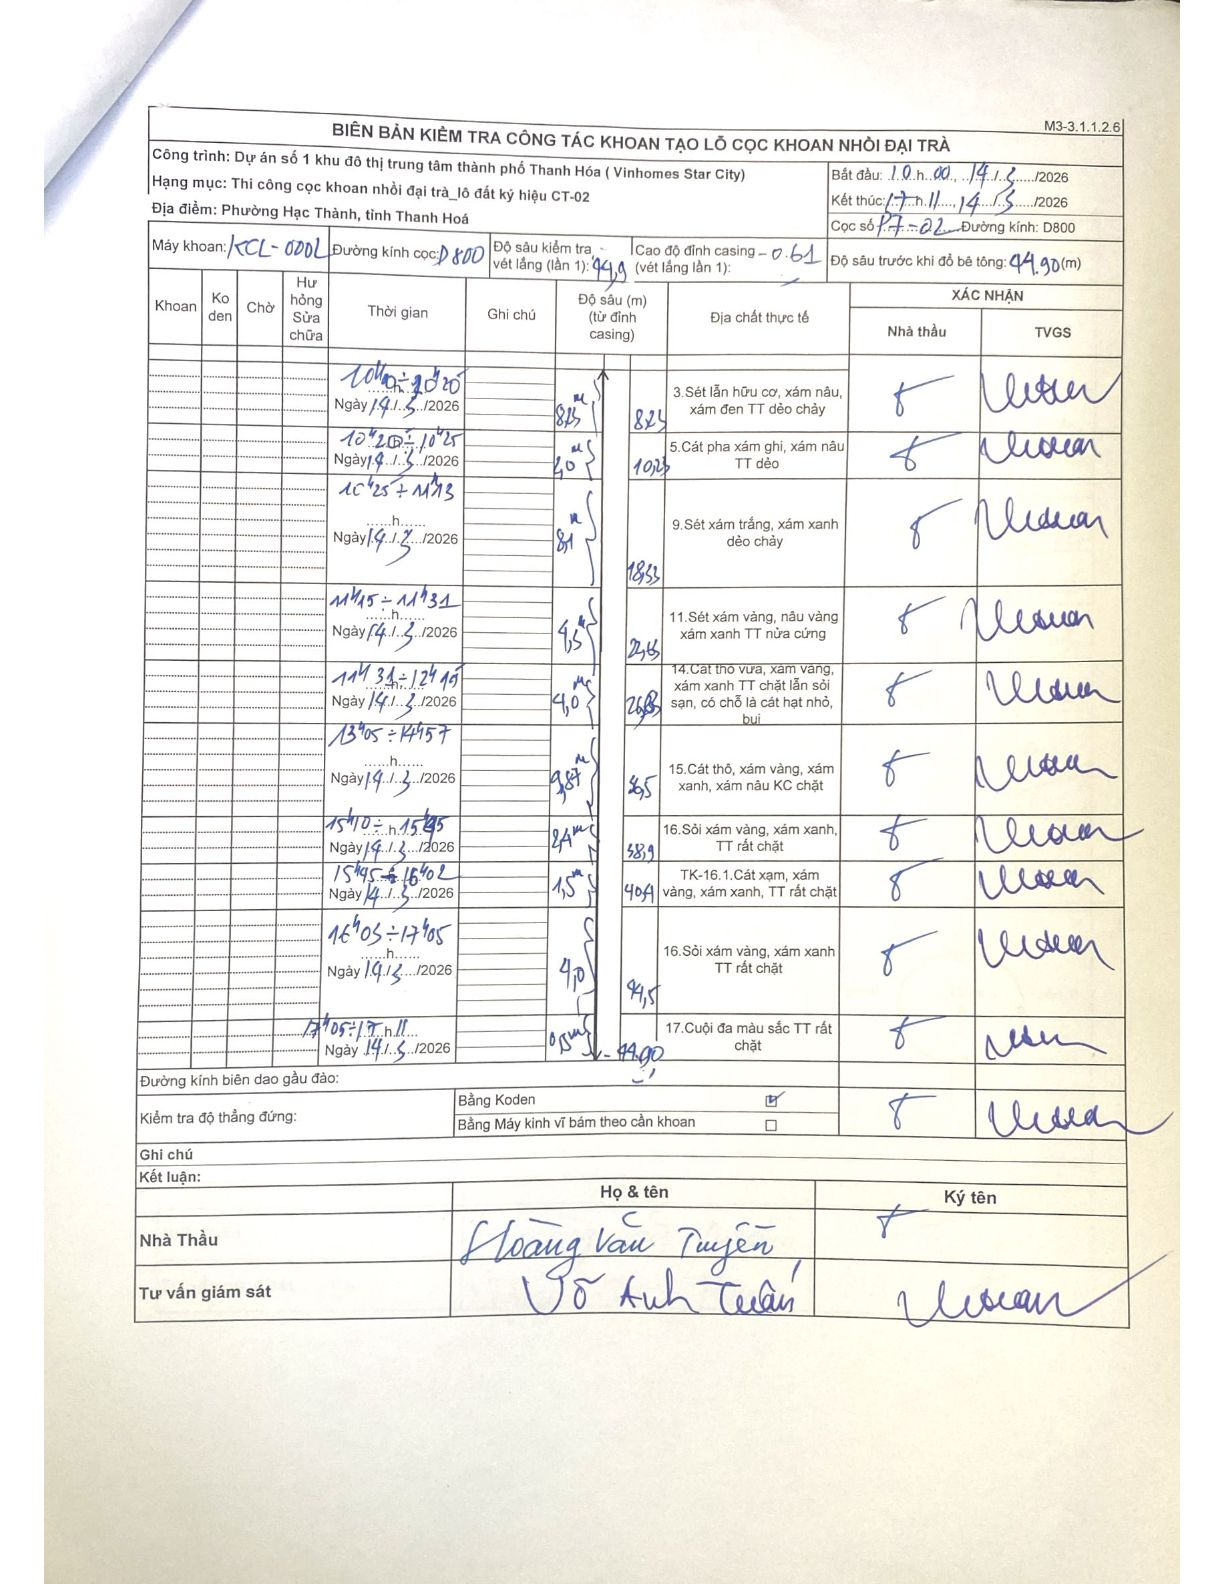 M3-3.1.1.2.6
BIÊN BẢN KIỂM TRA CÔNG TÁC KHOAN TẠO LỖ CỌC KHOAN NHỒI ĐẠI TRÀ
Công trình: Dự án số 1 khu đô thị trung tâm thành phố Thanh Hóa ( Vinhomes Star City)
Hạng mục: Thi công cọc khoan nhồi đại trà_lô đất ký hiệu CT-02
Địa điểm: Phường Hạc Thành, tỉnh Thanh Hoá
Bắt đầu: 10.h.00., .14./.3...../2026
Kết thúc: 17.h.11...., 14.../.3...../2026
Cọc số P7-02 Đường kính: D800
Máy khoan: KCL-0002 Đường kính cọc: D800 Độ sâu kiểm tra vét lắng (lần 1): 44,9 Cao độ đỉnh casing -0.61 (vét lắng lần 1): Độ sâu trước khi đổ bê tông: 44.90 (m)
Khoan Ko den Chờ Hư hỏng Sửa chữa Thời gian Ghi chú Độ sâu (m) (từ đỉnh casing) Địa chất thực tế XÁC NHẬN
Nhà thầu TVGS
Ngày 14./.3../2026 3.Sét lẫn hữu cơ, xám nâu, xám đen TT dẻo chảy
10h20÷10h25
Ngày 14./.3../2026 2,0m 10,23 5.Cát pha xám ghi, xám nâu TT dẻo
10h25÷11h13
......h......
Ngày 14../.3../2026 8,1m 18,33 9.Sét xám trắng, xám xanh dẻo chảy
11h15÷11h31
......h......
Ngày 14./.3../2026 4,3m 11.Sét xám vàng, nâu vàng xám xanh TT nửa cứng
11h31÷12h15
Ngày 14./.3../2026 4,0m 14.Cát thô vừa, xám vàng, xám xanh TT chặt lẫn sỏi sạn, có chỗ là cát hạt nhỏ, bụi
13h05÷14h57
......h......
Ngày 14./.3.../2026 9,87m 36,5 15.Cát thô, xám vàng, xám xanh, xám nâu KC chặt
15h10÷15h45
Ngày 14./.3.../2026 2,4m 38,9 16.Sỏi xám vàng, xám xanh, TT rất chặt
15h45÷16h02
Ngày 14../.3.../2026 1,5m 40,4 TK-16.1.Cát xạm, xám vàng, xám xanh, TT rất chặt
16h03÷17h05
......h......
Ngày 14./.3..../2026 4,0 44,5 16.Sỏi xám vàng, xám xanh TT rất chặt
17h05÷17.h.11...
Ngày .14./.3.../2026 0,5m 44.90 17.Cuội đa màu sắc TT rất chặt
Đường kính biên dao gầu đào:
Kiểm tra độ thẳng đứng: Bằng Koden ☑
Bằng Máy kinh vĩ bám theo cần khoan ☐
Ghi chú
Kết luận:
Họ & tên Ký tên
Nhà Thầu Hoàng Văn Tuyền
Tư vấn giám sát Võ Anh Tuấn